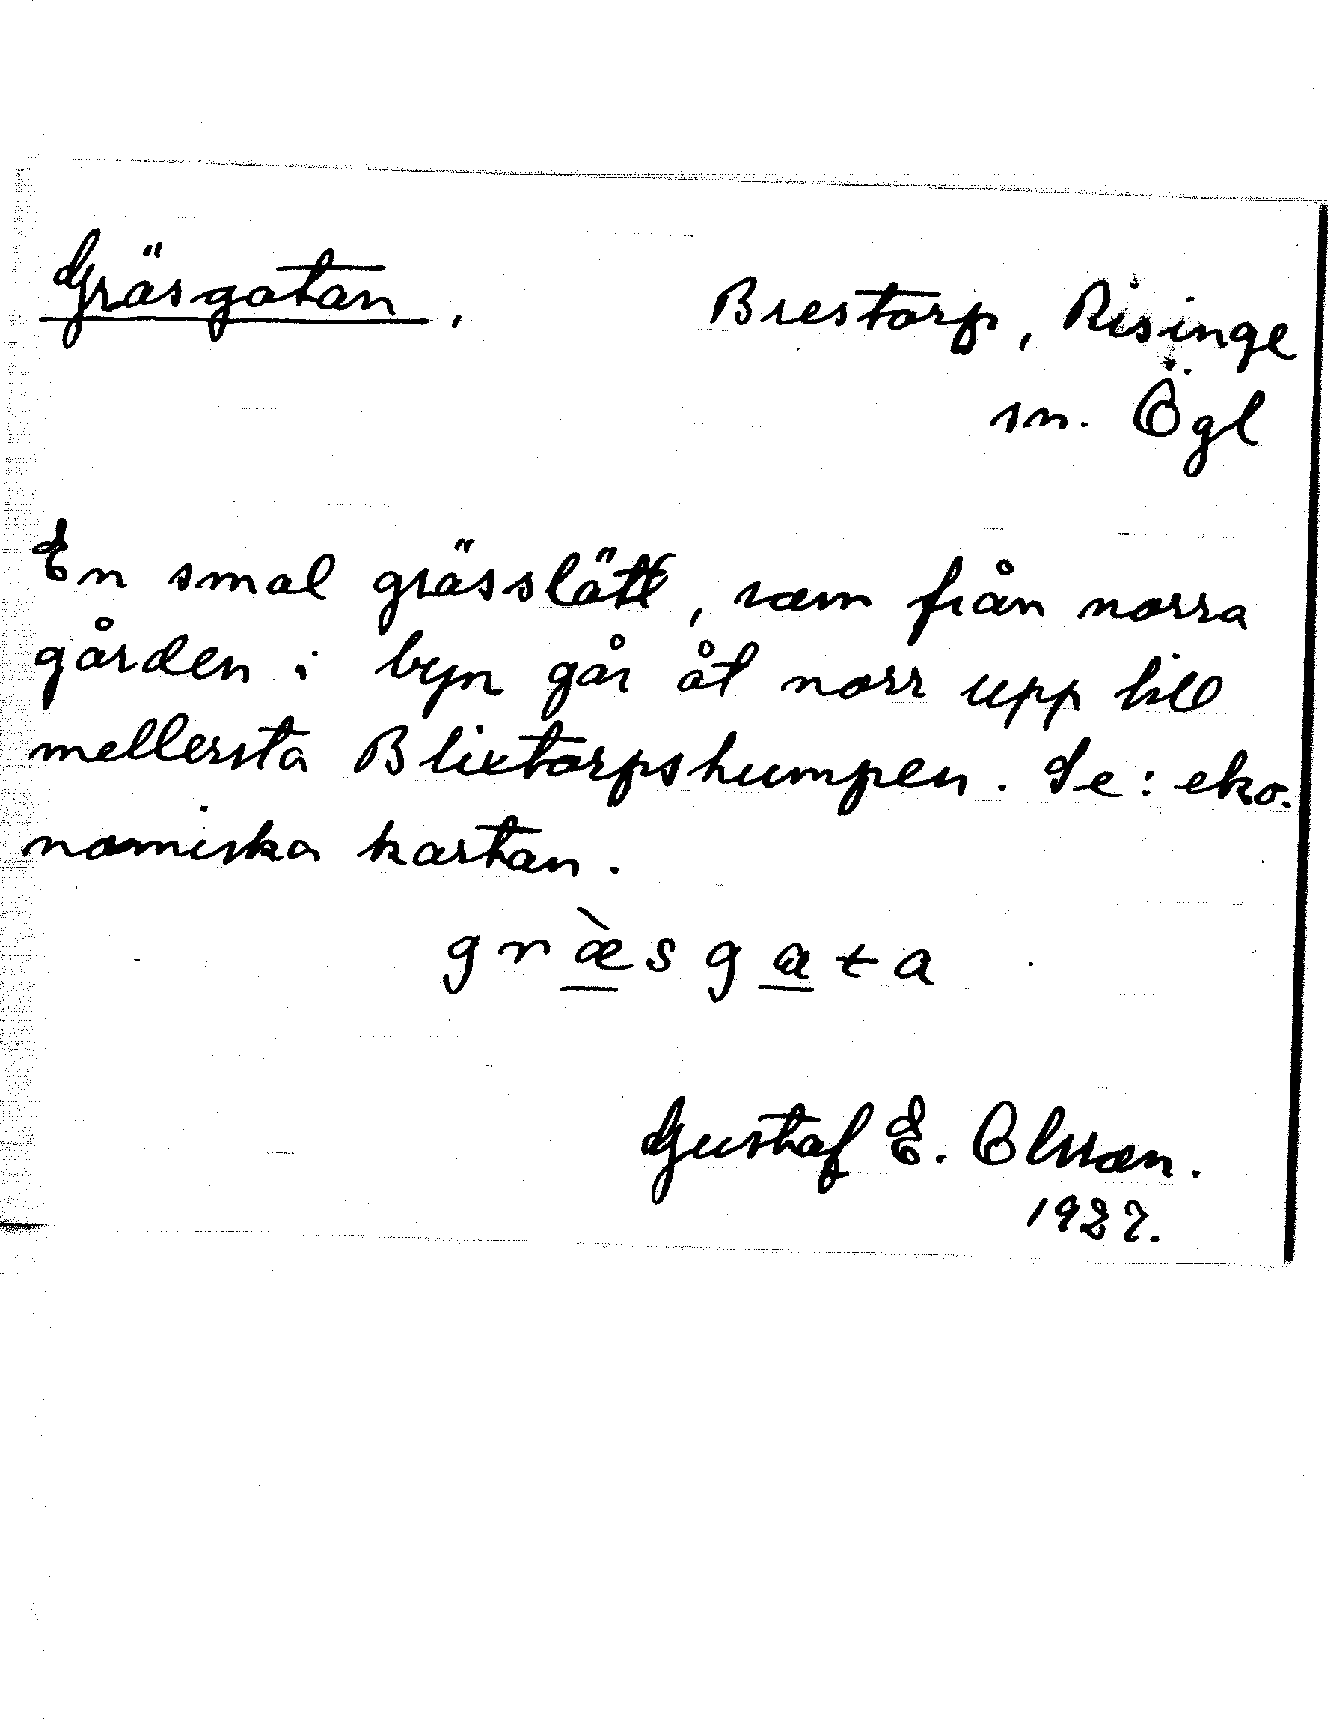 Gräsgatan, Brestorp, Risinge
sn. Ögl
En smal grässlätt, som från norra
gården i byn går åt norr upp till
mellersta Blixtorpshumpen. Se: eko-
nomiska kartan.
græ̀sgata
Gustaf E. Olsson.
1927.